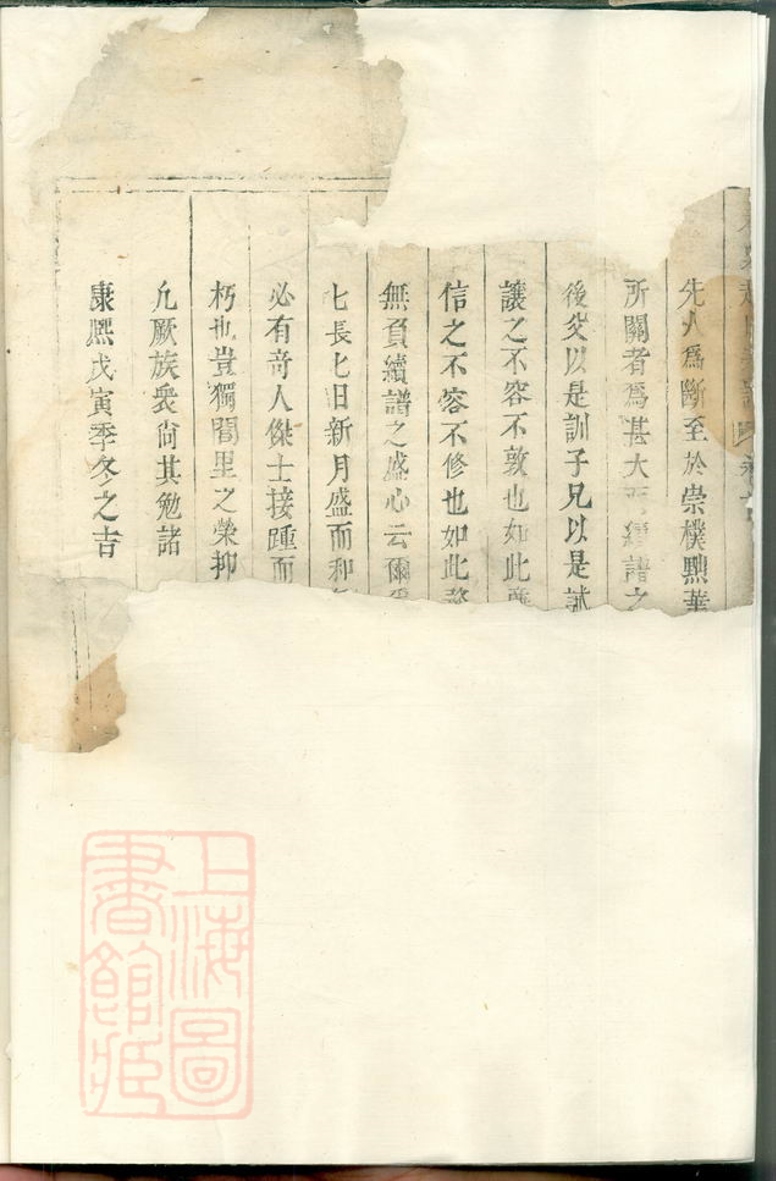 先人為斷至於崇樸黜華
所關者為甚大 續譜之
後父以是訓子兄以是試
讓之不容不敦也如此
信之不容不修也如此
無負續譜之盛心云爾
七長七旧新月盛而和
必有奇人傑士接踵而
朽也豈獨閭里之榮抑
凡厥族衆尙其勉諸
康熙戊寅季冬之吉
上海圖
書館藏